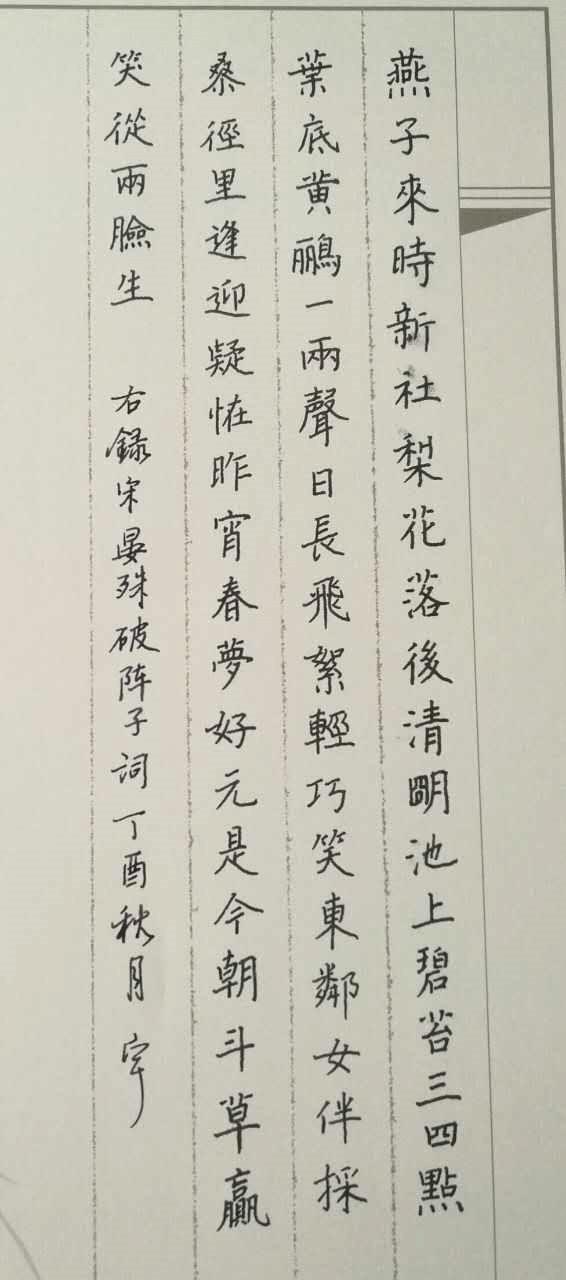 燕子來時新社梨花落後清明池上碧苔三四點
葉底黄鸝一兩聲日長飛絮輕巧笑東鄰女伴採
桑徑里逢迎疑怪昨宵春夢好元是今朝斗草贏
笑從兩臉生 右録宋晏殊破阵子詞丁酉秋月宇